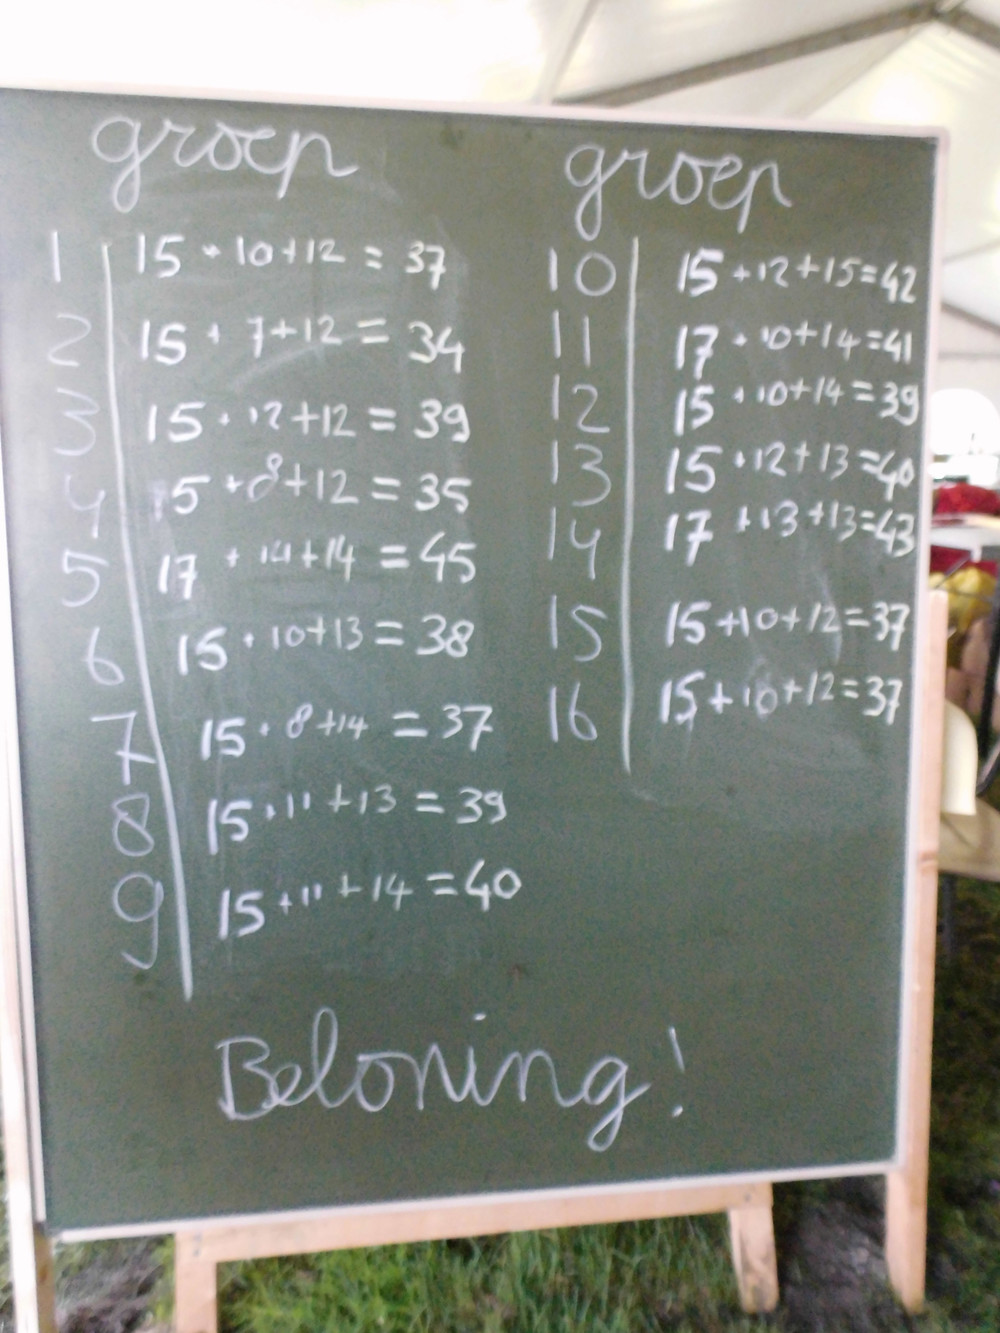 groep
1 15 + 10 + 12 = 37
2 15 + 7 + 12 = 34
3 15 + 12 + 12 = 39
4 15 + 8 + 12 = 35
5 17 + 14 + 14 = 45
6 15 + 10 + 13 = 38
7 15 + 8 + 14 = 37
8 15 + 11 + 13 = 39
9 15 + 11 + 14 = 40
groep
10 15 + 12 + 15 = 42
11 17 + 10 + 14 = 41
12 15 + 10 + 14 = 39
13 15 + 12 + 13 = 40
14 17 + 13 + 13 = 43
15 15 + 10 + 12 = 37
16 15 + 10 + 12 = 37
Beloning!